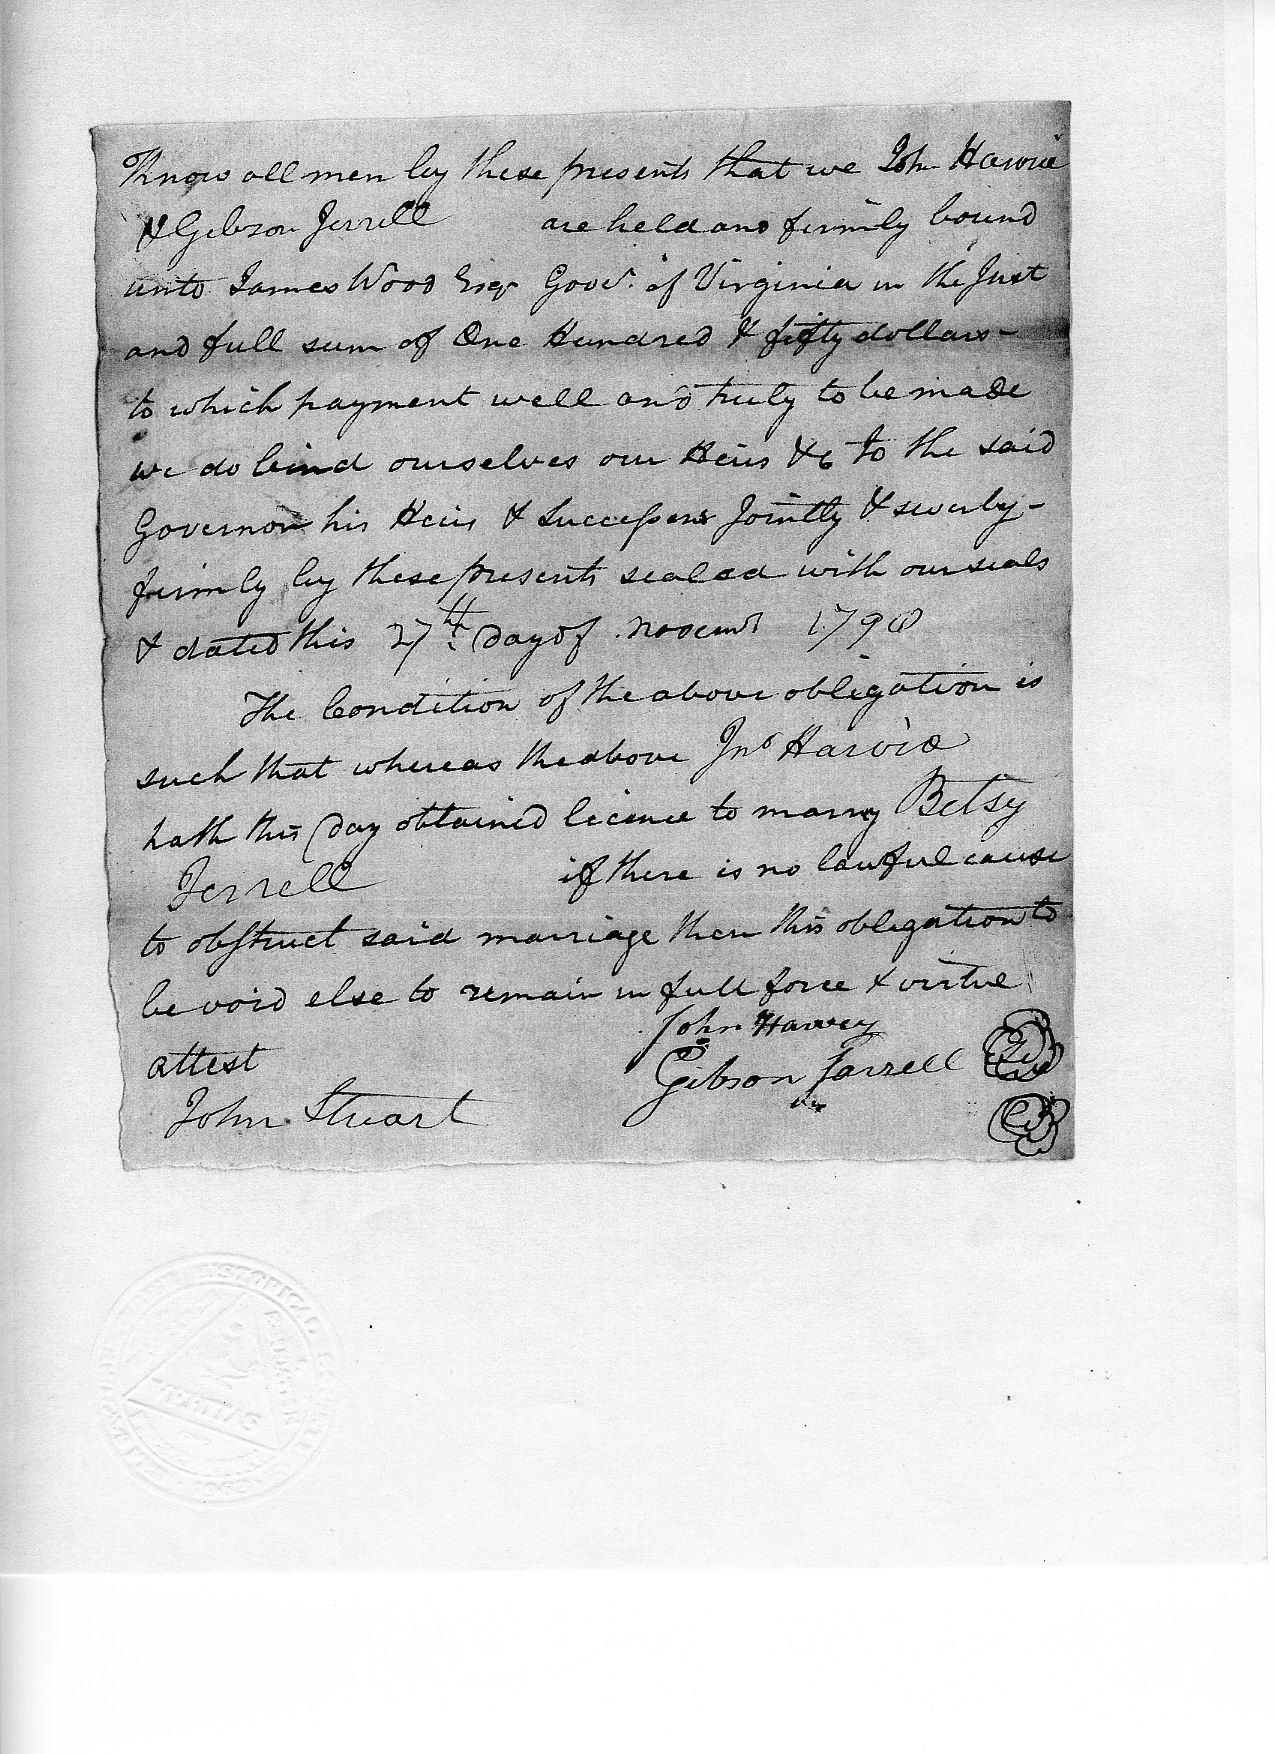 Know all men by these presents that we John Harvie
& Gibson Jerrell are held and firmly bound
unto James Wood Esqr Govr. of Virginia in the Just
and full sum of One Hundred & fifty dollars -
to which payment well and truly to be made
we do bind ourselves our Heirs &c to the said
Governor his Heirs & Successors Jointly & severly -
firmly by these presents sealed with our seals
& dated this 27th day of novemr 1798
The Condition of the above obligation is
such that whereas the above Jno Harvie
hath this day obtained licence to marry Betsy
Jerrell if there is no lawful cause
to obstruct said marriage then this obligation to
be void else to remain in full force & virtue
John Harvey
attest
Gibson Jarrell
John Stuart